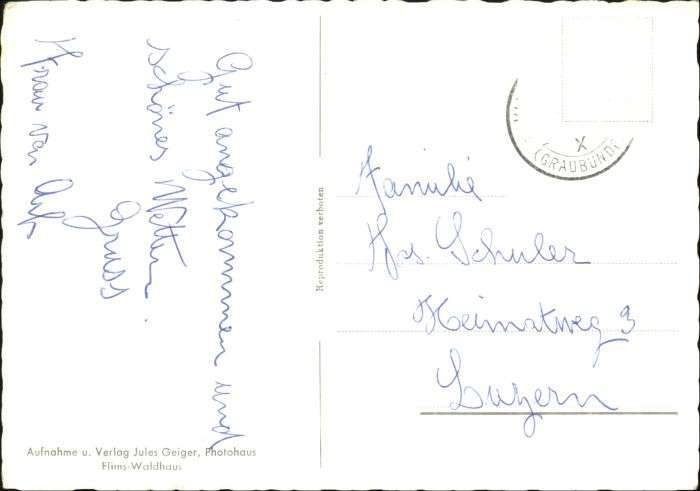 Gut angekommen und
schönes Wetter.
Gruss
Frau von
Familie
Hs. Schuler
Heimatweg 3
Luzern
X
(GRAUBÜND
Reproduktion verboten
Aufnahme u. Verlag Jules Geiger, Photohaus
Flims-Waldhaus